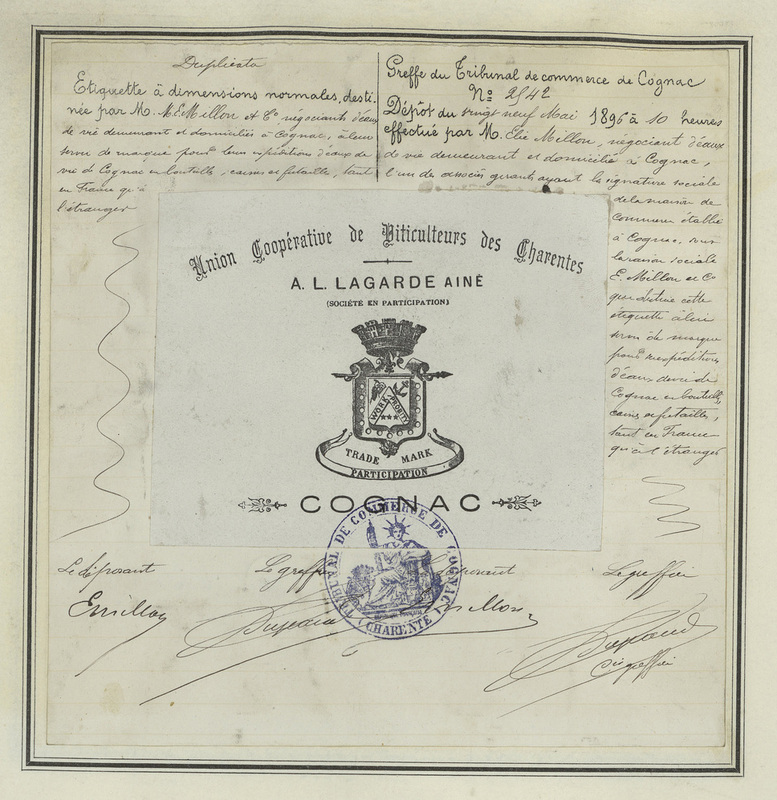 Duplicata
Etiquette à dimensions normales, desti-
née par M. E. Millon et Cie négociants d'eaux
de vie demeurant et domiciliés à Cognac, à leur
servir de marque pour leurs expéditions d'eaux de
vie de Cognac en bouteille, caisses et futailles, tant
en France qu'à
l'étranger
Greffe du Tribunal de commerce de Cognac
No 2542
Dépôt du vingt neuf Mai 1896 à 10 heures
effectué par M. Elie Millon, négociant d'eaux
de vie demeurant et domicilié à Cognac,
l'un des associés gérants ayant la signature sociale
de la maison de
commerce établie
à Cognac, sous
la raison sociale
E. Millon et Cie
que destine cette
étiquette à lui
servir de marque
pour ses expéditions
d'eaux de vie de
Cognac en bouteilles,
caisses et futailles,
tant en France
qu'à l'étranger
Union Coopérative de Viticulteurs des Charentes
A. L. LAGARDE AINÉ
(SOCIÉTÉ EN PARTICIPATION)
WORK
PROBITY
TRADE MARK
PARTICIPATION
COGNAC
TRIBUNAL DE COMMERCE DE COGNAC
(CHARENTE)
Le déposant
Le greffier
Le déposant
Le greffier
EMillon
EMillon
cis greffier